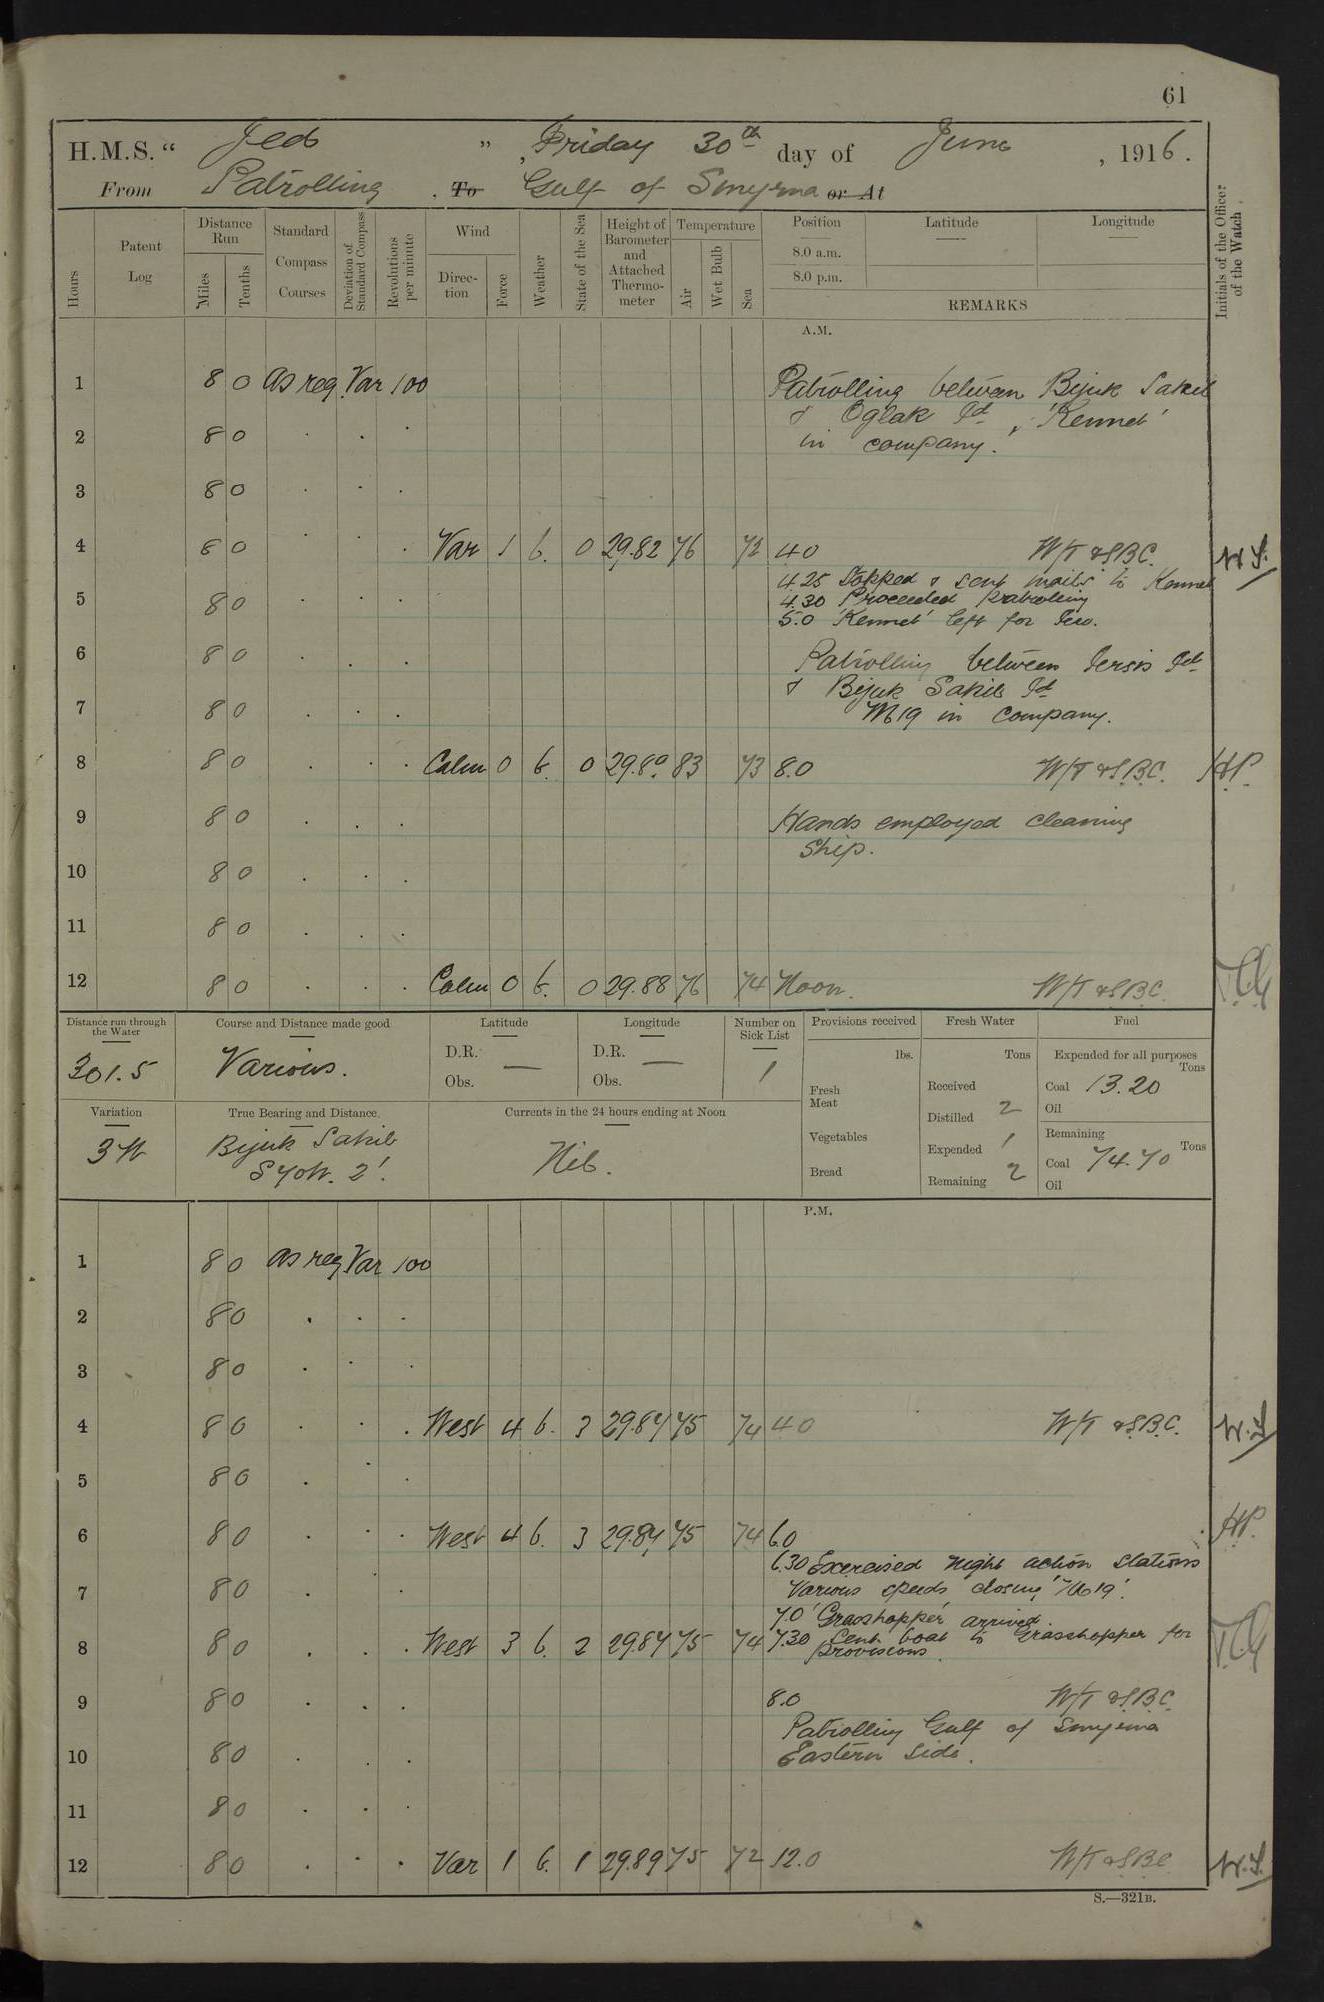 61
H.M.S. " Jed " , Friday 30th day of June , 1916.
From Patrolling . To Gulf of Smyrna or At
Hours Patent Log Distance Run Miles Tenths Standard Compass Courses Deviation of Standard Compass Revolutions per minute Wind Direction Force Weather State of the Sea Height of Barometer and Attached Thermometer Temperature Air Wet Bulb Sea Position 8.0 a.m. 8.0 p.m. Latitude Longitude Initials of the Officer of the Watch.
REMARKS
A.M.
1 8 0 As req. Var 100 Patrolling between Bijuk Sakib
& Oglak Id, 'Kennet'
2 8 0 . . . in company.
3 8 0 . . .
4 8 0 . . . Var 1 b. 0 29.82 76 72 4.0 W/T & S.B.C. W.S.
4.25 Stopped & sent mails to Kennet
5 8 0 . . . 4.30 Proceeded patrolling
5.0 'Kennet' left for Iero.
6 8 0 . . . Patrolling between Id
& Bijuk Sakib Id
7 8 0 . . . M19 in company.
8 8 0 . . . Calm 0 b. 0 29.80 83 73 8.0 W/T & S.B.C. H.P.
9 8 0 . . . Hands employed cleaning
ship.
10 8 0 . . .
11 8 0 . . .
12 8 0 . . . Calm 0 b. 0 29.88 76 74 Noon. W/T & S.B.C.
Distance run through the Water Course and Distance made good Latitude Longitude Number on Sick List Provisions received Fresh Water Fuel
301.5 Various. D.R. — Obs. D.R. — Obs. 1 lbs. Tons Expended for all purposes Tons
Fresh Meat Received Coal 13.20
Distilled 2 Oil
Variation True Bearing and Distance. Currents in the 24 hours ending at Noon Vegetables Expended 1 Remaining Tons
3 W Bijuk Sakib Nil. Coal 74.70
S 70 W. 2'. Bread Remaining 2 Oil
P.M.
1 8 0 As req Var 100
2 8 0 . . .
3 8 0 . . .
4 8 0 . . . West 4 b. 3 29.84 75 74 4.0 W/T & S.B.C. W.S.
5 8 0 . . .
6 8 0 . . . West 4 b. 3 29.84 75 74 6.0 H.P.
6.30 Exercised Night action stations
7 8 0 . . . Various speeds closing 'M19'.
7.0 'Grasshopper' arrived.
8 8 0 . . . West 3 b. 2 29.84 75 74 7.30 Sent boat to Grasshopper for
provisions.
9 8 0 . . . 8.0 W/T & S.B.C.
Patrolling Gulf of Smyrna
10 8 0 . . . Eastern side.
11 8 0 . . .
12 8 0 . . . Var 1 b. 1 29.89 75 72 12.0 W/T & S.B.C. W.S.
S.—321B.